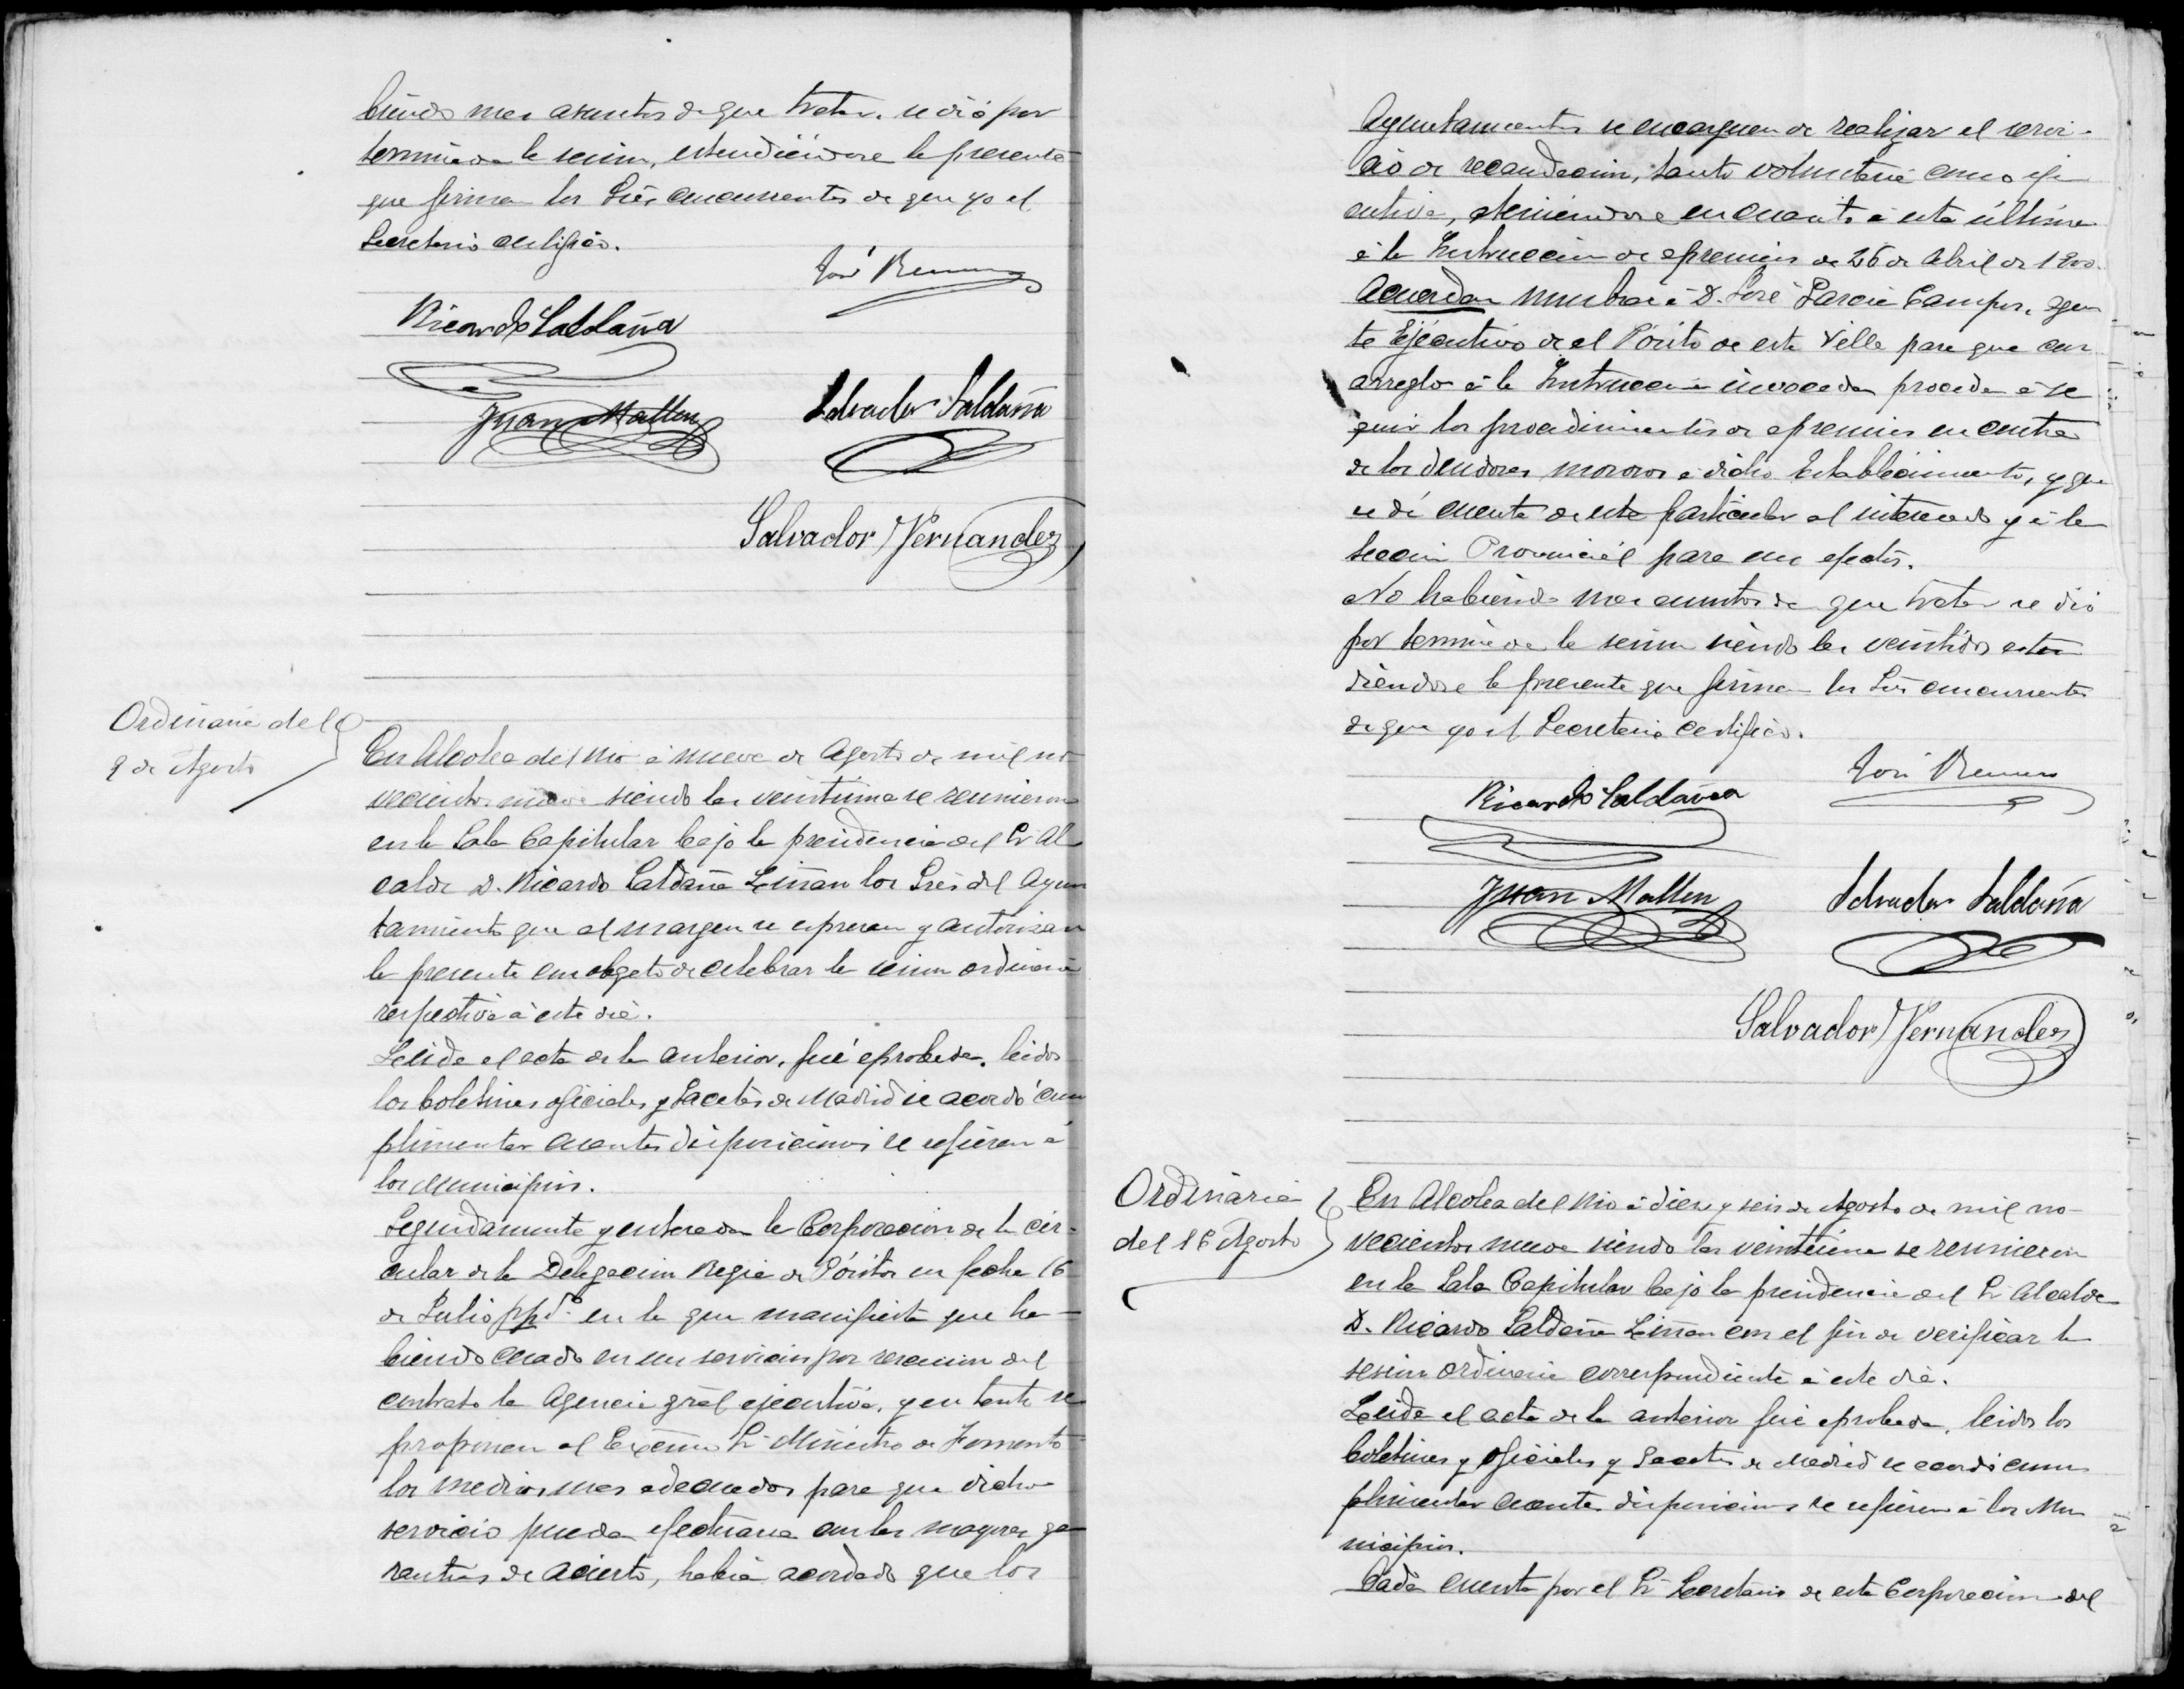 biendo mas asuntos de que tratar, se dió por
terminada la sesion, estendiéndose la presente
que firman los Sres. concurrentes de que yo el
Secretario certifico.
José
Ricardo Saldaña
Juan Mallen
Salvador Saldaña
Salvador Fernandez
Ordinaria del
9 de Agosto
En Alcolea del Rio á nueve de Agosto de mil no-
vecientos nueve siendo las veintiuna se reunieron
en la Sala Capitular bajo la presidencia del Sr. Al
calde D. Ricardo Saldaña Liñan los Sres del Ayun
tamiento que al margen se espresan y autorizan
la presente con objeto de celebrar la sesion ordinaria
respectiva á este dia.
Leida el acta de la anterior, fué aprobada, leidos
los boletines oficiales y Gacetas de Madrid se acordó cum
plimentar cuantas disposiciones se refieren á
los Municipios.
Seguidamente y enterada la Corporacion de la cir-
cular de la Delegacion Regia de Pósitos su fecha 16
de Julio ppdo. en la que manifiesta que ha-
biendo cesado en sus servicios por rescision del
contrato la Agencia gral ejecutiva, y en tanto se
proponen al Excmo Sr. Ministro de Fomento
los medios mas adecuados para que dicho
servicio pueda efectuarse con las mayores ga
rantias de acierto, habia acordado que los
Ayuntamientos se encarguen de realizar el servi-
cio de recaudacion, tanto voluntaria como eje
cutiva, ateniendose en cuanto á esta última
á la Instruccion de apremios de 26 de Abril de 1900.
Acuerdan nombrar á D. José Garcia Campos, agen
te Ejecutivo de el Pósito de esta Villa para que con
arreglo á la Instruccion invocada proceda á se
guir los procedimientos de apremios en contra
de los deudores morosos á dicho Establecimiento, y que
se dé cuenta de este particular al interesado y á la
Seccion Provincial para sus efectos.
No habiendo mas asuntos de que tratar se dió
por terminada la sesion siendo las veintidos esten
diendose la presente que firman los Sres concurrentes
de que yo el Secretario certifico.
José
Ricardo Saldaña
Juan Mallen
Salvador Saldaña
Salvador Fernandez
Ordinaria
del 16 Agosto
En Alcolea del Rio á diez y seis de Agosto de mil no-
vecientos nueve siendo las veintiuna se reunieron
en la Sala Capitular bajo la presidencia del Sr. Alcalde
D. Ricardo Saldaña Liñan con el fin de verificar la
sesion ordinaria correspondiente á este dia.
Leida el acta de la anterior fué aprobada, leidos los
boletines y oficiales y Gacetas de Madrid se acordó cum
plimentar cuantas disposiciones se refieren á los Mu
nicipios.
Dada cuenta por el Sr. Secretario de esta Corporacion del